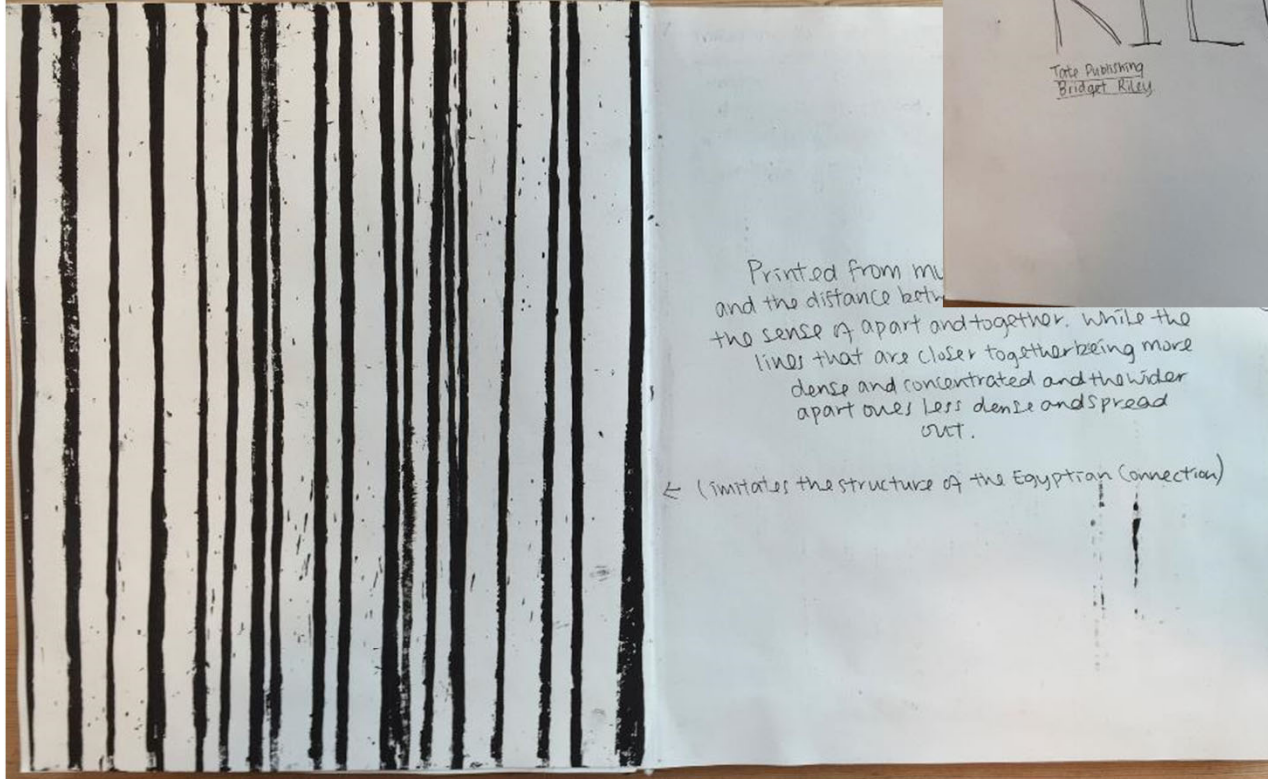 Tate Publishing
Bridget Riley
Printed from
and the distance
the sense of apart and together. While the
lines that are closer together being more
dense and concentrated and the wider
apart ones less dense and spread
out.
← (imitates the structure of the Egyptian Connection)